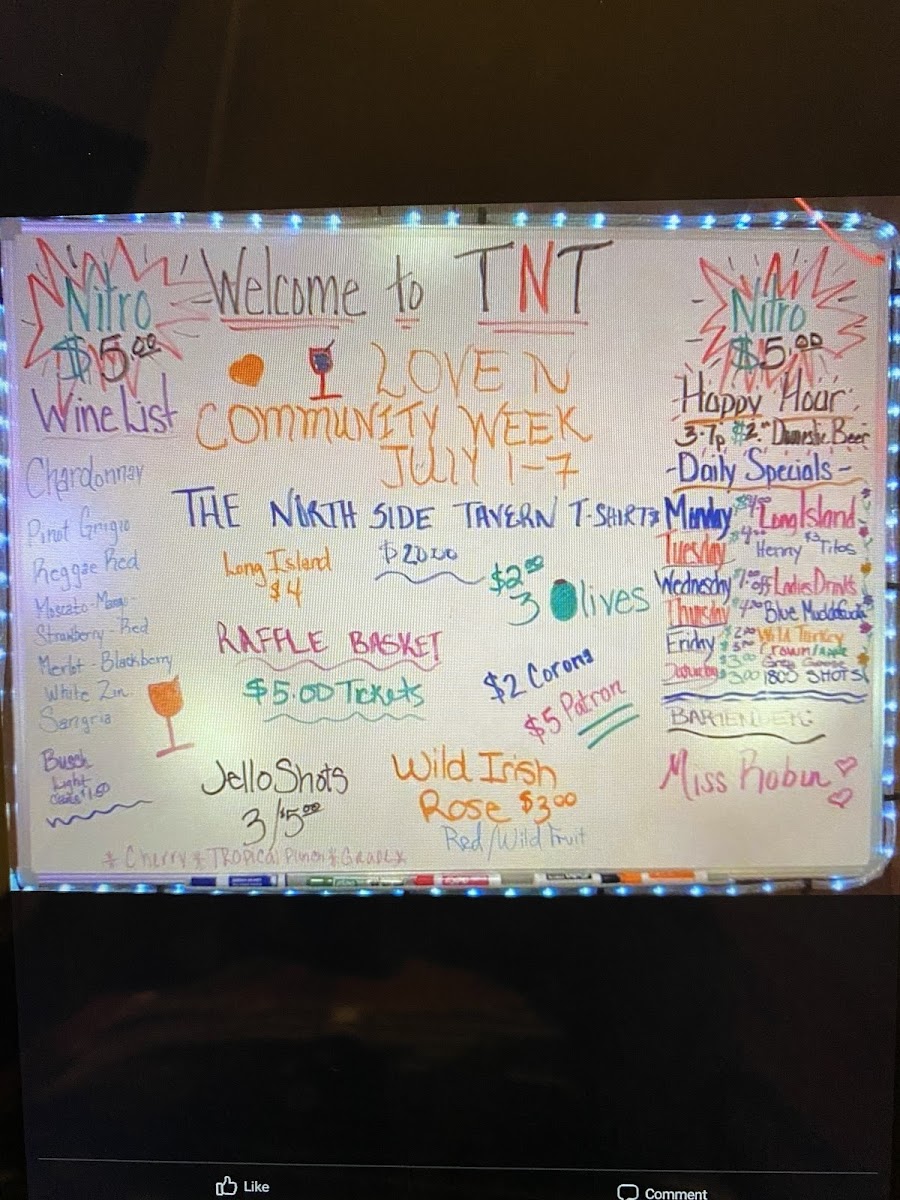 Nitro
$5.00
Wine List
Chardonnay
Pinot Grigio
Reggae Red
Moscato - Mango -
Strawberry - Red
Merlot - Blackberry
White Zin
Sangria
Busch
Light
$1.50
Welcome to TNT
LOVE N
COMMUNITY WEEK
JULY 1-7
THE NORTH SIDE TAVERN T-SHIRTS
$20.00
Long Island
$4
$2.00
3 Olives
RAFFLE BASKET
$5.00 Tickets
$2 Corona
$5 Patron
Jello Shots
3/$5.00
* Cherry * TROPICAL Punch * Grape *
Wild Irish
Rose $3.00
Red/Wild Fruit
Nitro
$5.00
Happy Hour:
3-7p $2. Domestic Beer
-Daily Specials-
Monday $4.00 Long Island
Tuesday $4.00 Henny $3 Titos
Wednesday off Ladies Drinks
Thursday $4.00 Blue
Friday $2.00 Wild Turkey
Crown/Apple
$3.00 Grey Goose
Saturday $3.00 1800 SHOTS
BARTENDER:
Miss Robin
Like
Comment